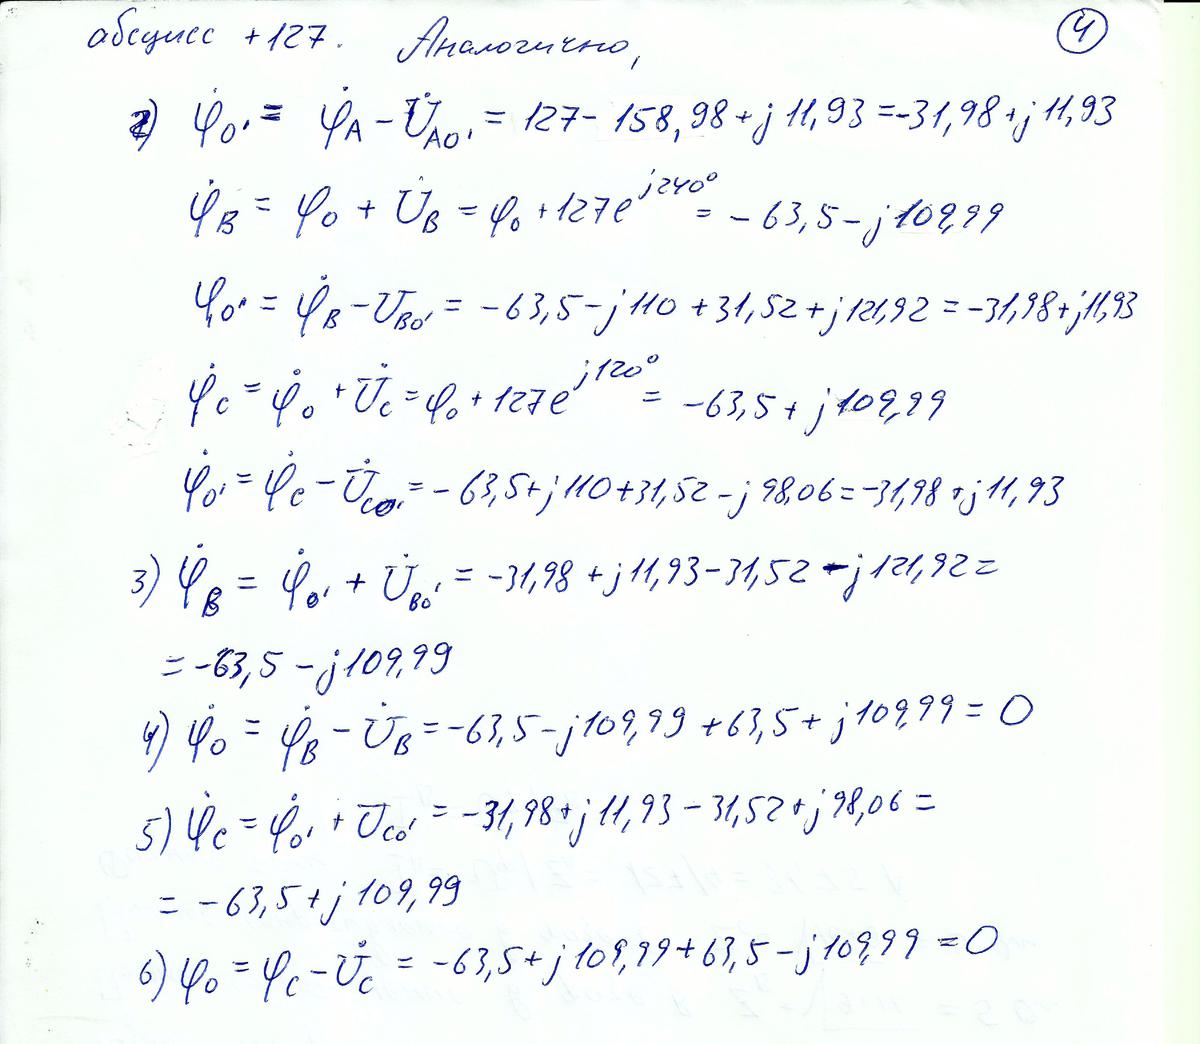 абсцисс +127. Аналогично, 4
2) φ̇o' = φ̇A - U̇Ao' = 127 - 158,98 + j 11,93 = -31,98 + j 11,93
φ̇B = φo + U̇B = φo + 127e^j240° = - 63,5 - j 109,99
φo' = φ̇B - UBo' = - 63,5 - j110 + 31,52 + j121,92 = -31,98 + j11,93
φ̇c = φ̇o + U̇c = φo + 127e^j120° = -63,5 + j 109,99
φ̇o' = φ̇c - U̇co' = - 63,5 + j110 + 31,52 - j 98,06 = -31,98 + j11,93
3) φ̇B = φ̇o' + U̇Bo' = -31,98 + j11,93 - 31,52 - j121,92 =
= -63,5 - j109,99
4) φ̇o = φ̇B - U̇B = -63,5 - j109,99 + 63,5 + j109,99 = 0
5) φ̇c = φ̇o' + Uco' = -31,98 + j11,93 - 31,52 + j98,06 =
= - 63,5 + j 109,99
6) φo = φc - U̇c = -63,5 + j109,99 + 63,5 - j109,99 = 0